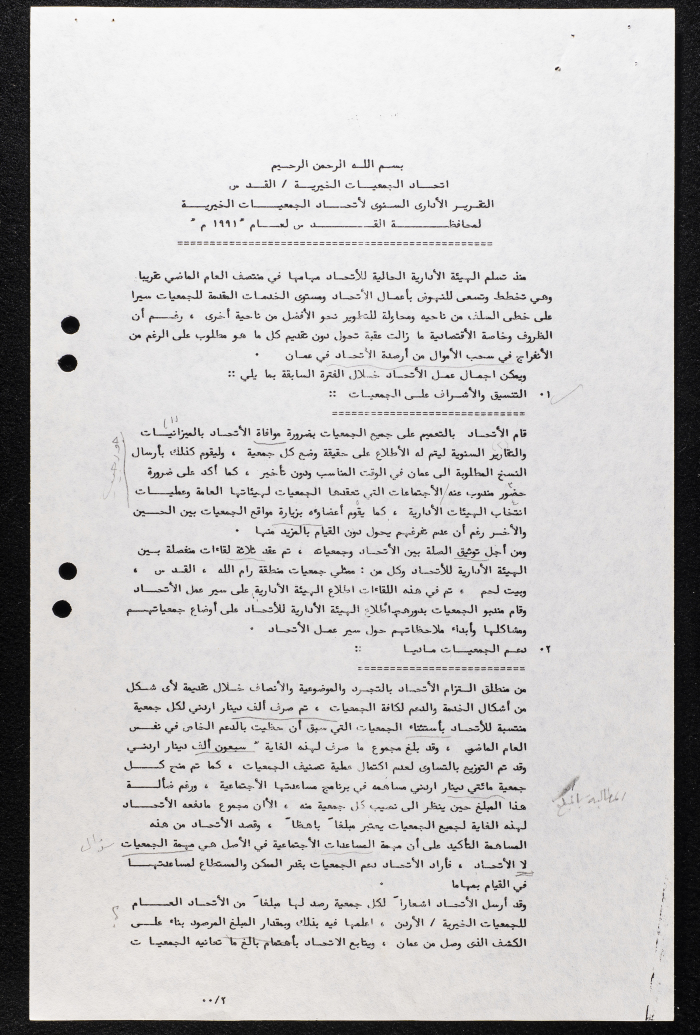 بسم الله الرحمن الرحيم
اتحاد الجمعيات الخيرية / القدس
التقرير الأدارى السنوى لأتحاد الجمعيات الخيرية
لمحافظة القدس لعام "١٩٩١ م"
منذ تسلم الهيئة الأدارية الحالية للأتحاد مهامها في منتصف العام الماضي تقريبا
وهي تخطط وتسعى للنهوض بأعمال الأتحاد ومستوى الخدمات المقدمة للجمعيات سيرا
على خطى السلف من ناحيه ومحاولة للتطوير نحو الأفضل من ناحية أخرى ، رغم أن
الظروف وخاصة الأقتصادية ما زالت عقبة تحول دون تقديم كل ما هو مطلوب على الرغم من
الأنفراج في سحب الأموال من أرصدة الأتحاد في عمان .
ويمكن اجمال عمل الأتحاد خلال الفترة السابقة بما يلي ::
٠١ التنسيق والأشراف على الجمعيات ::
قام الأتحاد بالتعميم على جميع الجمعيات بضرورة موافاة الأتحاد بالميزانيات
والتقارير السنوية ليتم له الأطلاع على حقيقة وضع كل جمعية ، وليقوم كذلك بأرسال
النسخ المطلوبة الى عمان في الوقت المناسب ودون تأخير ، كما أكد على ضرورة
حضور مندوب عنه الأجتماعات التي تعقدها الجمعيات لهيئاتها العامة وعمليات
انتخاب الهيئات الأدارية ، كما يقوم أعضاؤه بزيارة مواقع الجمعيات بين الحين
والأخر رغم أن عدم تفرغهم يحول دون القيام بالمزيد منها .
ومن أجل توثيق الصلة بين الأتحاد وجمعياته ، تم عقد ثلاثة لقاءات منفصلة بين
الهيئة الأدارية للأتحاد وكل من : ممثلي جمعيات منطقة رام الله ، القدس ،
وبيت لحم ، تم في هذه اللقاءات اطلاع الهيئة الأدارية على سير عمل الأتحاد
وقام مندبو الجمعيات بدورهم بأطلاع الهيئة الأدارية للأتحاد على أوضاع جمعياتهم
ومشاكلها وأبداء ملاحظاتهم حول سير عمل الأتحاد .
٠٢ دعم الجمعيات ماديا ::
من منطلق التزام الأتحاد بالتجرد والموضوعية والأنصاف خلال تقديمة لأى شكل
من أشكال الخدمة والدعم لكافة الجمعيات ، تم صرف ألف دينار اردني لكل جمعية
منتسبة للأتحاد بأستثناء الجمعيات التي سبق أن حظيت بالدعم الخاص في نفس
العام الماضي ، وقد بلغ مجموع ما صرف لهذه الغاية " سبعون ألف دينار اردني
وقد تم التوزيع بالتساوى لعدم اكتمال عملية تصنيف الجمعيات ، كما تم منح كل
جمعية مائتي دينار اردني مساهمه في برنامج مساعدتها الأجتماعية ، ورغم ضألة
هذا المبلغ حين ينظر الى نصيب كل جمعية منه ، الأأن مجموع مادفعه الأتحاد
لهذه الغاية لجميع الجمعيات يعتبر مبلغا" باهظا" ، وقصد الأتحاد من هذه
المساهمة التأكيد على أن مهمة المساعدات الأجتماعية في الأصل هي مهمة الجمعيات
لا الأتحاد ، فأراد الأتحاد دعم الجمعيات بقدر الممكن والمستطاع لمساعدتها
في القيام بمهاما .
وقد أرسل الأتحاد اشعارا" لكل جمعية رصد لها مبلغا" من الأتحاد العام
للجمعيات الخيرية / الأردن ، اعلمها فيه بذلك وبمقدار المبلغ المرصود بناء على
الكشف الذى وصل من عمان ، ويتابع الاتحاد بأهتمام بالغ ما تعانيه الجمعيات
٠٠/٢